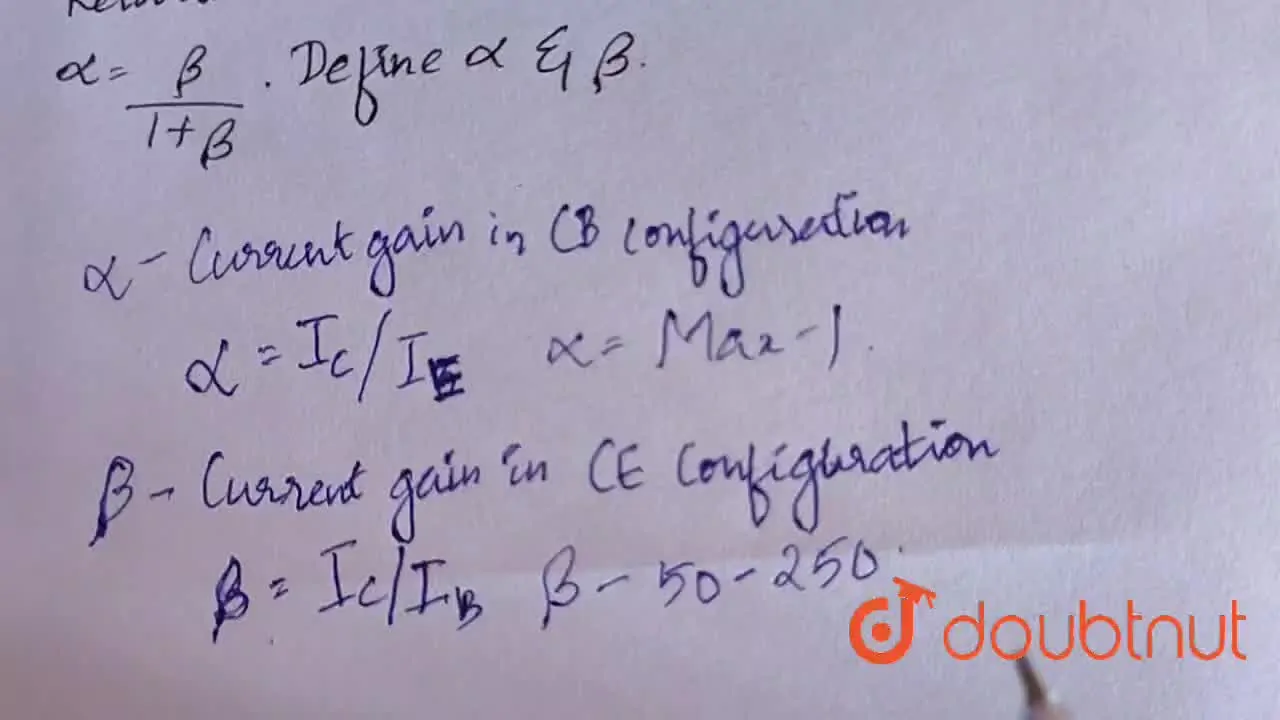 α = β / 1+β . Define α & β.
α - Current gain in CB configuration
α = Ic/IE α = Max - 1.
β - Current gain in CE Configuration
β = Ic/IB β - 50 - 250.
doubtnut